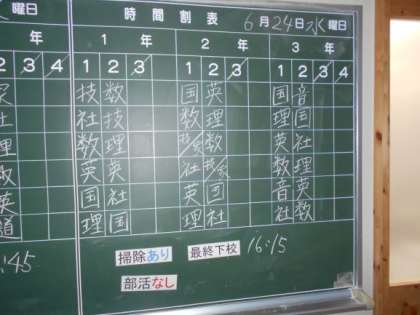 曜日 時間割表 6月24日水曜日
年 1年 2年 3年
2 3 4 1 2 3 1 2 3 1 2 3 4
技 数 国 英 国 音
社 社 技 理 国 理 国
理 数 理 数 英 社
英 英 社 数 理
英 国 社 英 国 音 英
道 理 国 理 社 社 数
:45 掃除あり 最終下校 16:15
部活なし